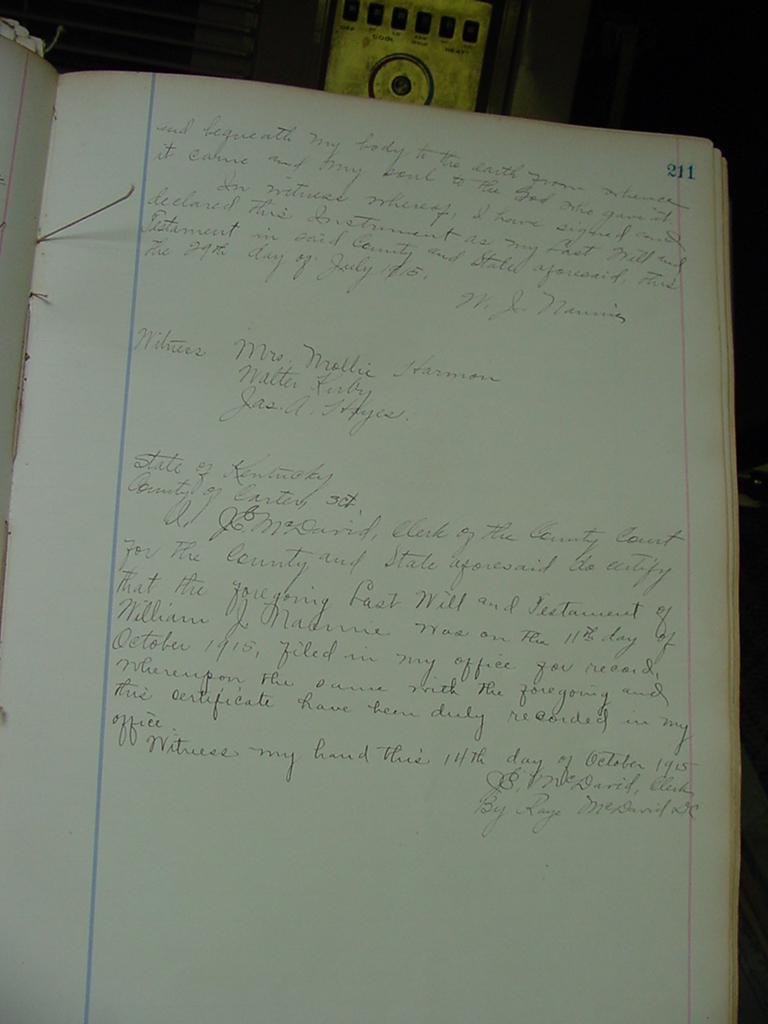 OFF LO COOL HEAT
211
and bequeath my body to the earth from whence
it came and my soul to the God who gave it
In witness whereof, I have signed and
declared this Instrument as my Last Will and
Testament in said County and State aforesaid, this
the 29th day of July 1915.
W. J.
Witness Mrs. Mollie Harmon
Walter Kirby
Jas. A. Hayes.
State of Kentucky
County of Carter, Sct.
I, J.B. McDavid, Clerk of the County Court
for the County and State aforesaid do certify
that the foregoing Last Will and Testament of
William J. was on the 11th day of
October 1915, filed in my office for record,
whereupon the same with the foregoing and
this certificate have been duly recorded in my
office.
Witness my hand this 14th day of October 1915
J.B. McDavid, Clerk
By Raye McDavid DC